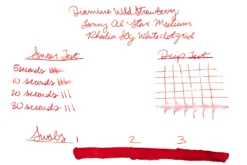 Diamine Wild Strawberry
Lamy Al-Star Medium
Rhodia Ice White dotgrid
Smear Test
Drip Test
5 seconds
10 seconds
20 seconds
30 seconds
Swabs
1 2 3